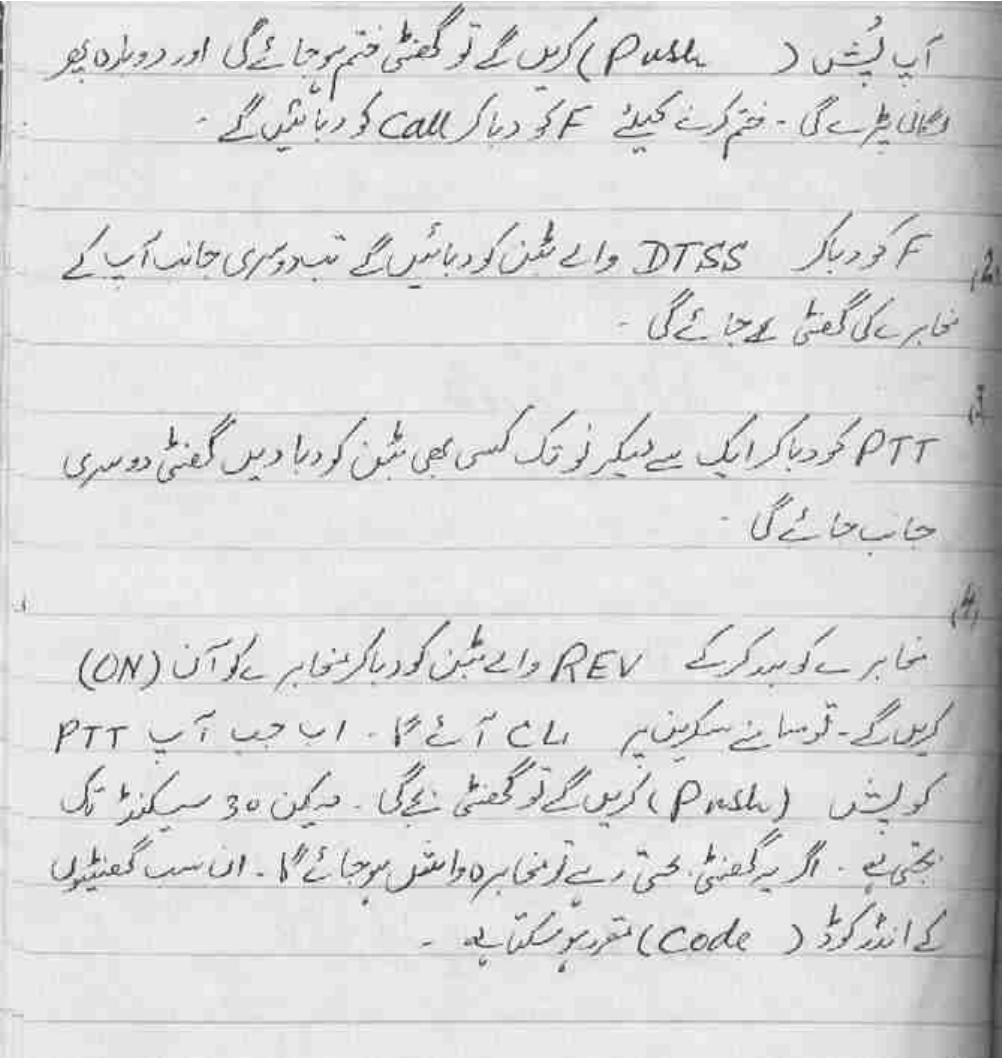 آپ پُش ( Push ) کریں گے تو گھنٹی ختم ہو جائے گی اور دوبارہ پھر
لگانی پڑے گی - ختم کرنے کیلئے F کو دبا کر Call کو دبائیں گے -
(2) F کو دبا کر DTSS والے بٹن کو دبائیں گے تب دوسری جانب آپ کے
مخابرے کی گھنٹی جائے گی -
(3)
PTT کو دبا کر ایک سے لیکر نو تک کسی بھی بٹن کو دبا دیں گھنٹی دوسری
جانب جائے گی -
(4)
مخابرے کو بند کرکے REV والے بٹن کو دبا کر مخابرے کو آن (ON)
کریں گے - تو سامنے سکرین پر آئے گا - اب جب آپ PTT
کو پش (Push) کریں گے تو گھنٹی بجے گی - لیکن 30 سیکنڈ تک
بجتی ہے - اگر یہ گھنٹی بجتی رہے تو مخابرہ واش ہو جائے گا - ان سب گھنٹیوں
کے اندر کوڈ ( Code ) مقرر ہو سکتا ہے -